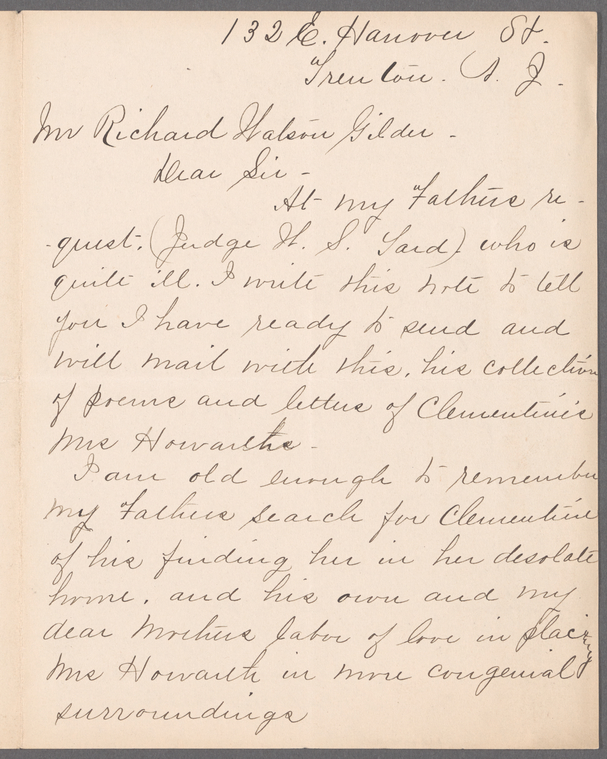 132 E. Hanover St.
Trenton. N. J.
Mr Richard Watson Gilder -
Dear Sir -
At my Fathers re-
-quest, (Judge W. S. Yard) who is
quite ill. I write this note to tell
you I have ready to send and
will mail with this, his collection
of poems and letters of Clementine's
Mrs Howarths -
I am old enough to remember
my Fathers search for Clementine
of his finding her in her desolate
home, and his own and my
dear Mothers labor of love in placing
Mrs Howarth in more congenial
surroundings